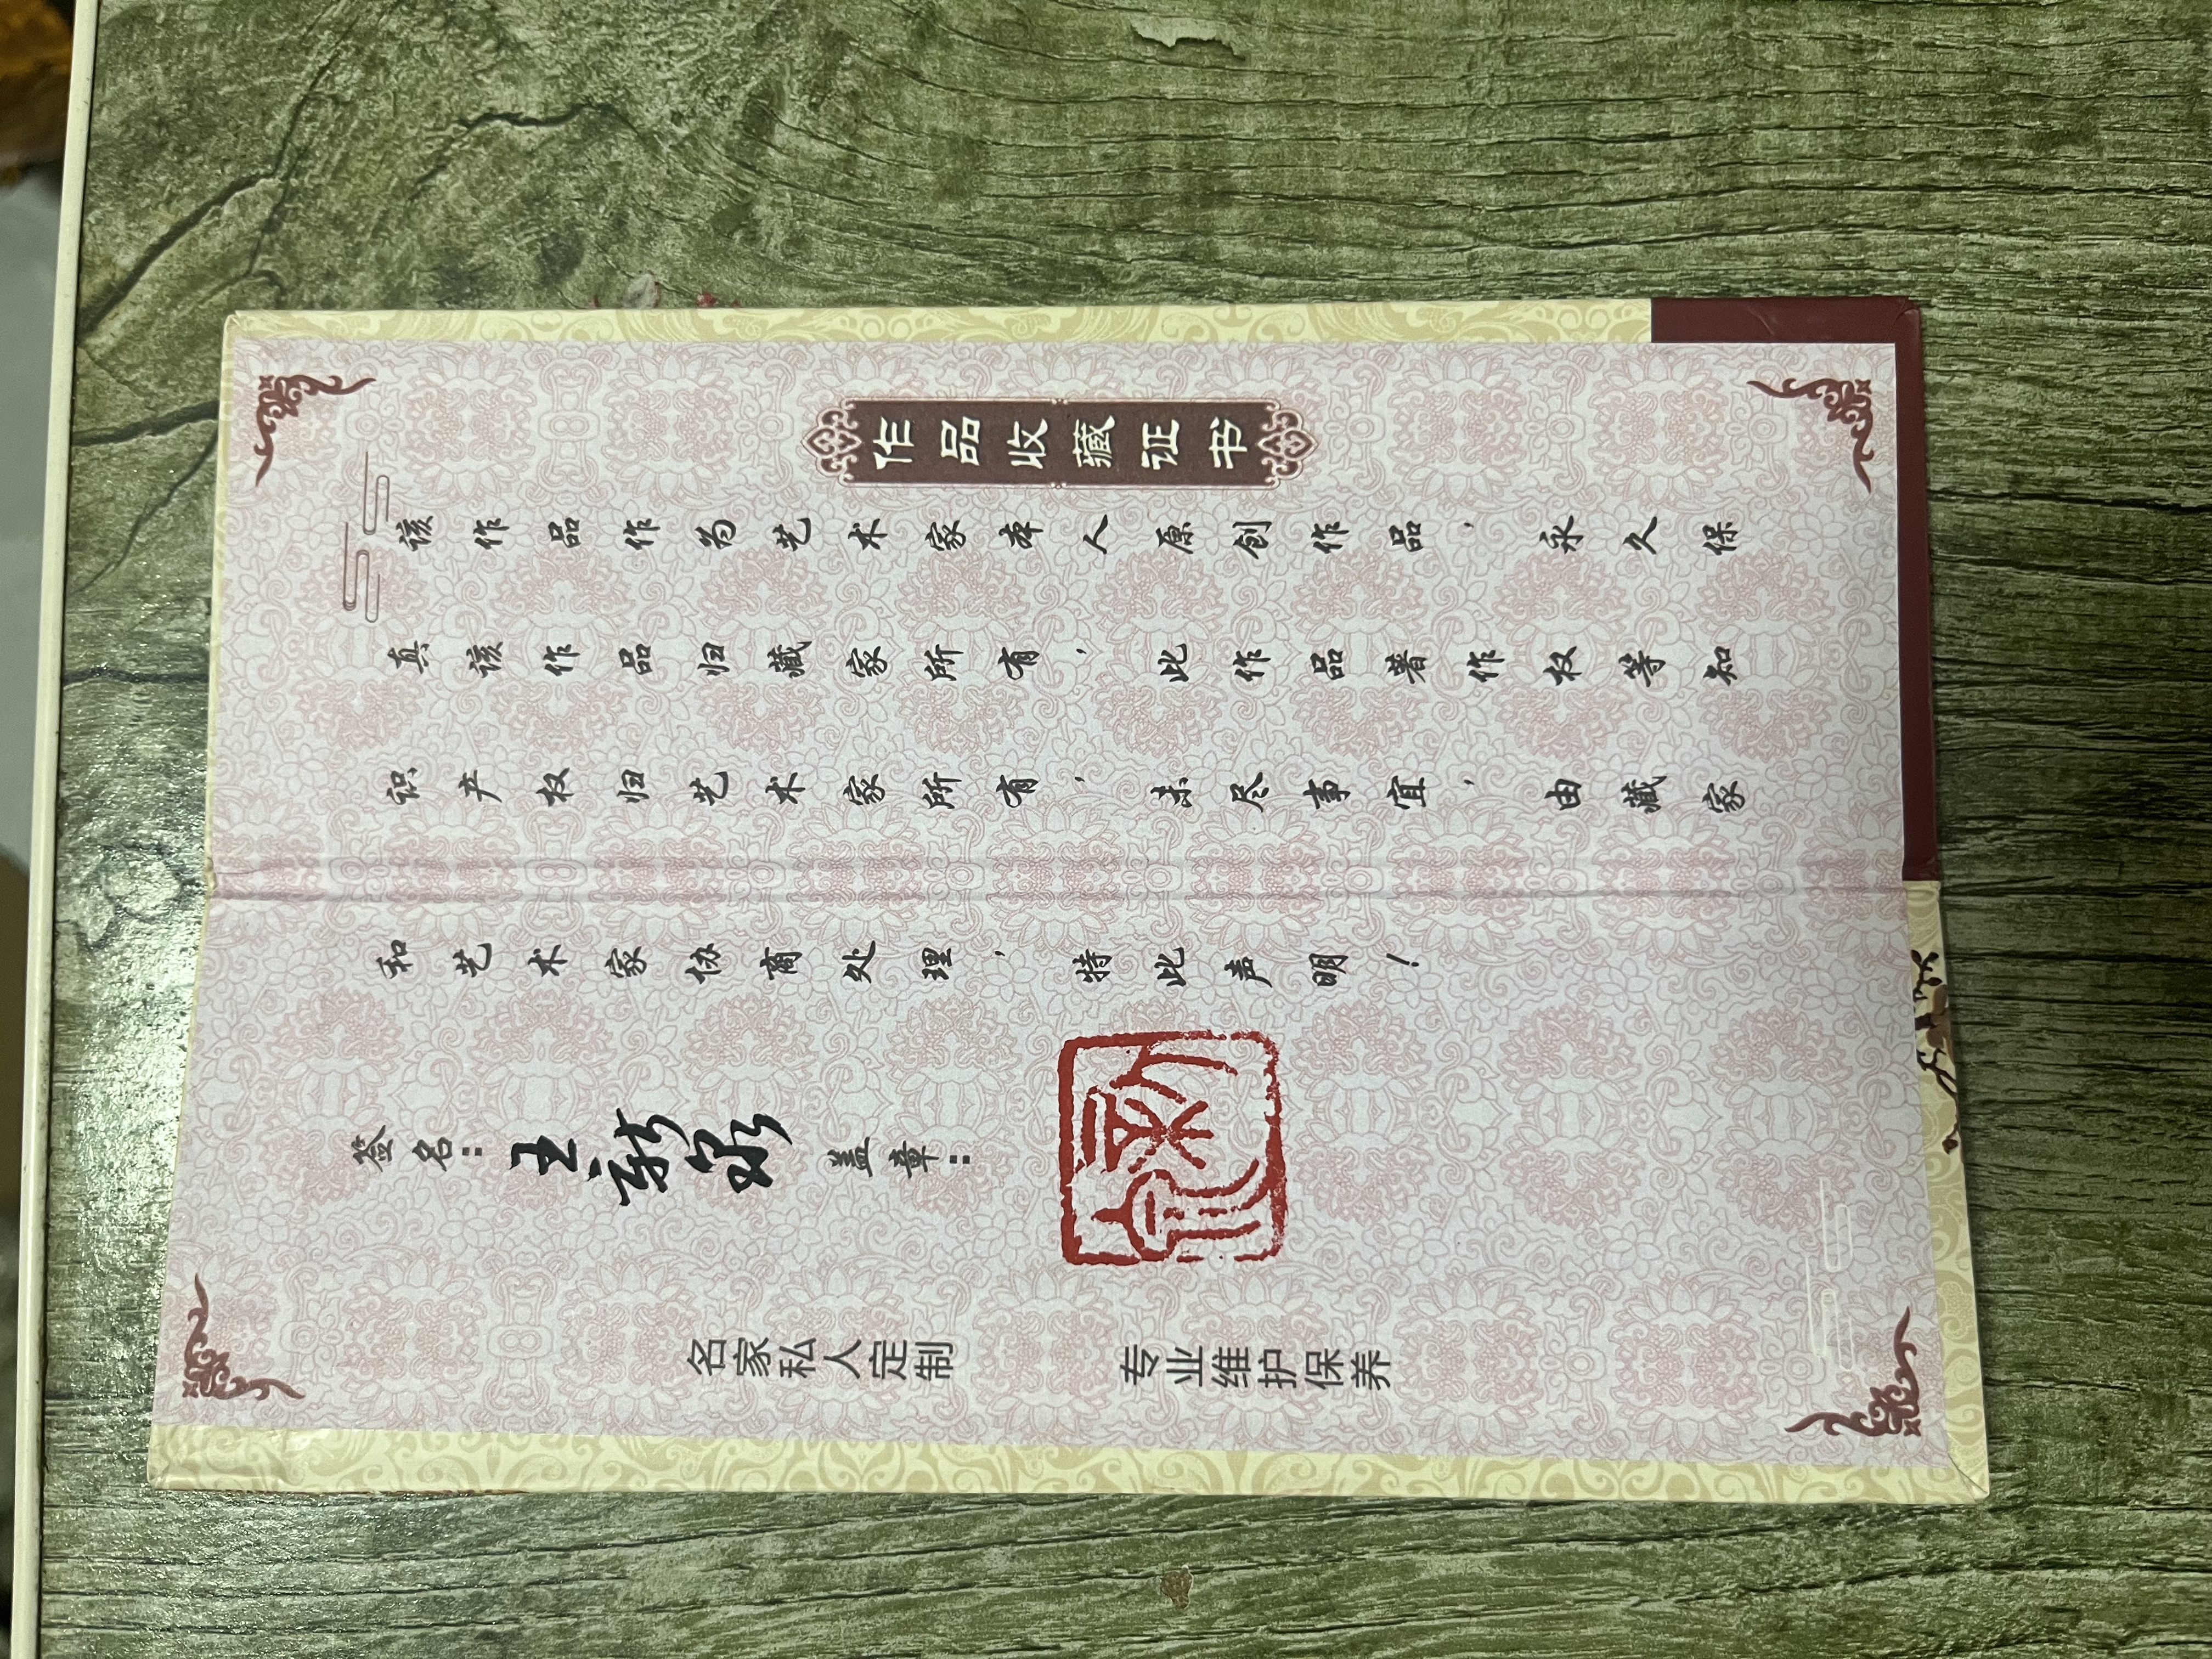 作品收藏证书
该作品作为艺术家本人原创作品，永久保
真该作品归藏家所有，此作品著作权等知
识产权归艺术家所有，未尽事宜，由藏家
和艺术家协商处理，特此声明！
签名：王新泉 盖章：
名家私人定制 专业维护保养